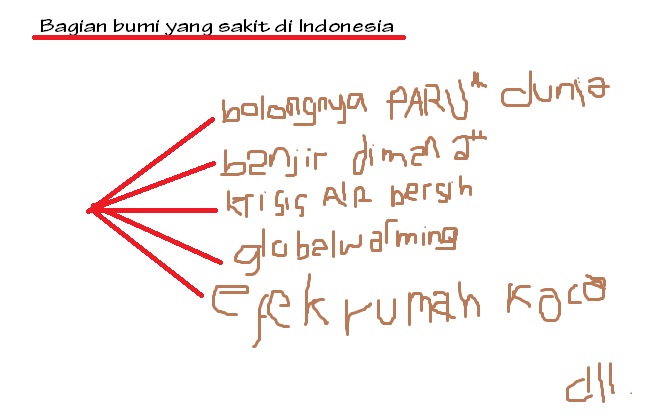 Bagian bumi yang sakit di Indonesia
bolongnya PARU" dunia
banjir dimana"
krisis AIR bersih
globalwarming
Efek rumah kaca
dll